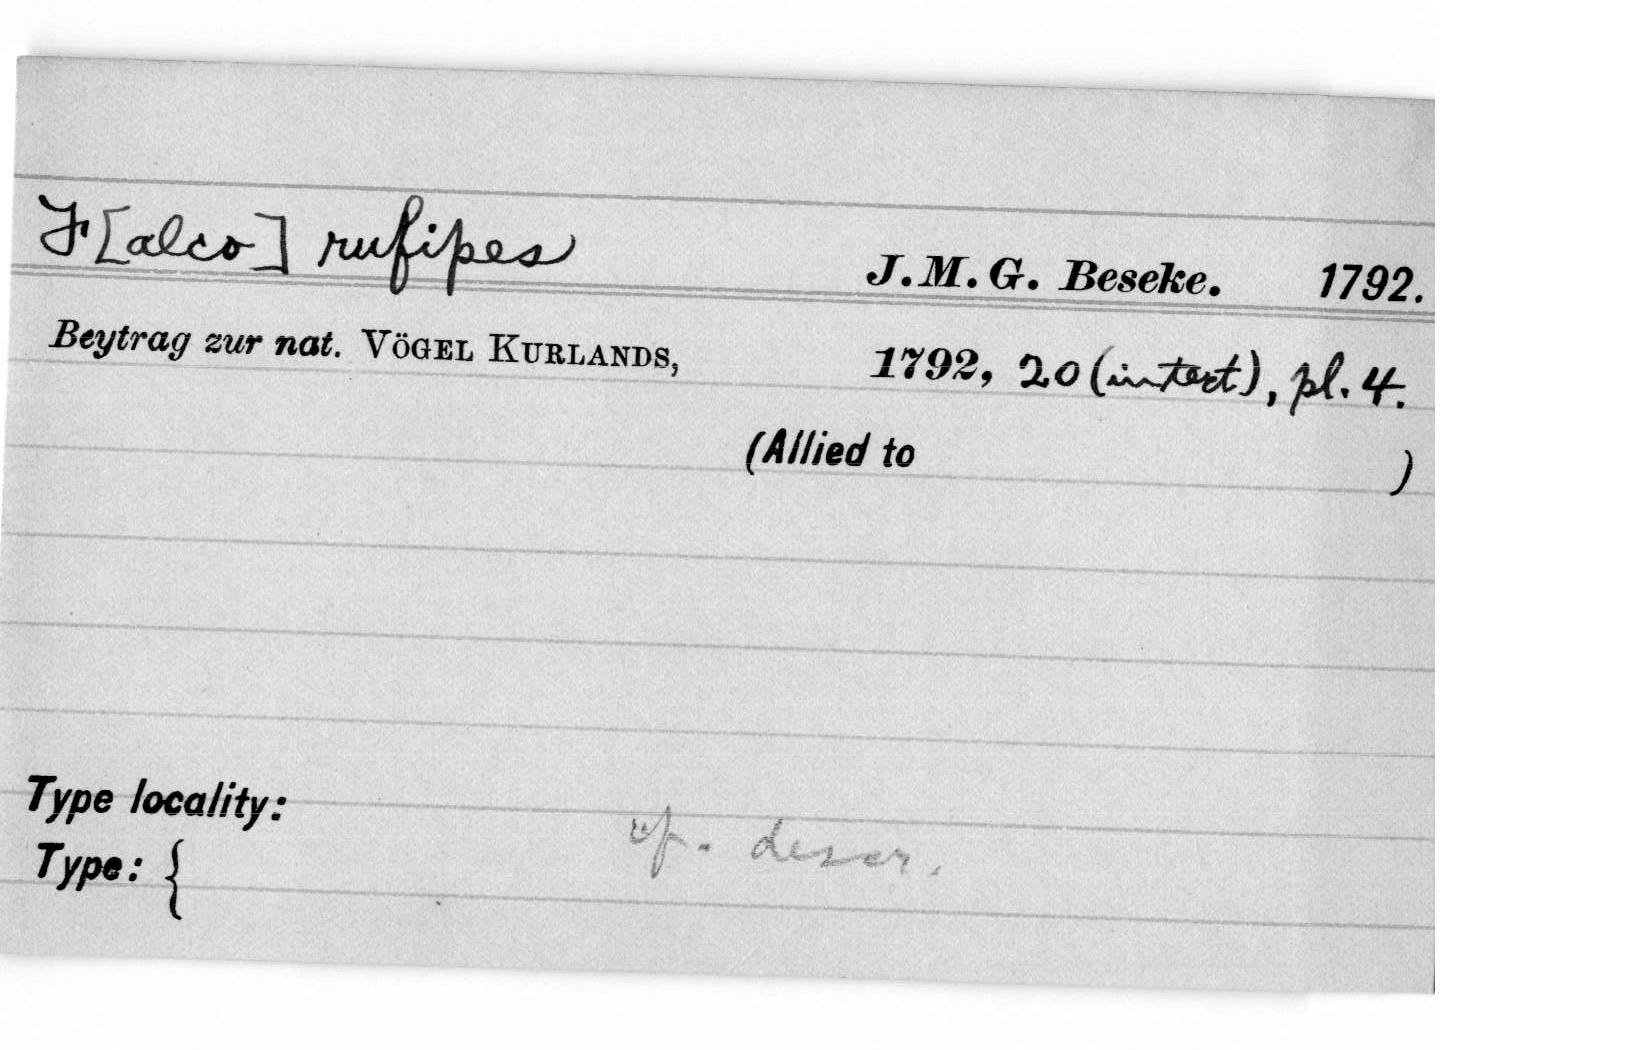 F[alco] rufipes J. M. G. Beseke. 1792.
Beytrag zur nat. VÖGEL KURLANDS, 1792, 20 (in text), pl. 4.
(Allied to )
Type locality:
Type: { descr.